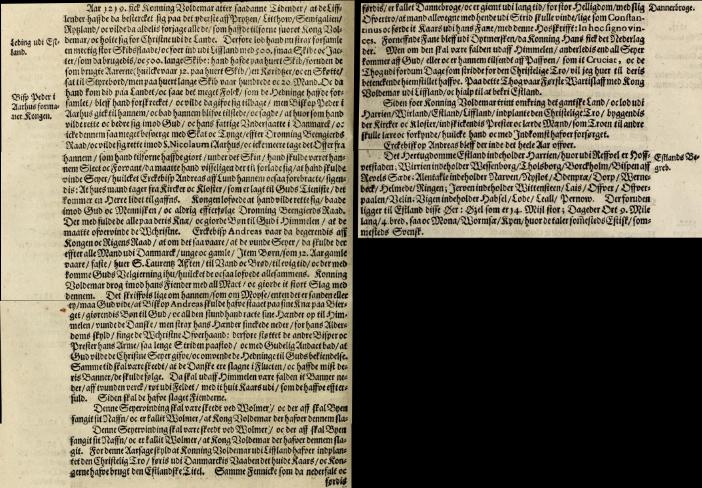 Aar 1219. fick Konning Voldemar atter saadanne Tidender / at de Liff-
lender hafde da bestercket sig paa det yderste aff Prytzen / Litthow / Semigalien /
Rytzland / oc vilde da aldelis forjage alle dem / som hafde tilforne hiulpet Kong Vol-
demar / oc holdet sig for Christne udi de Lande. Derfore lod hand med strax forsamle
en mectig stor Skibsflaade / oc foer ind udi Liffland med 500. smaa Skibe oc Jac-
ter / som da brugedis / oc 500. lange Skibe:
Leding udi Est-
land.
hand kom did paa Landet / oc saae det meget Folck / som de Hedninge hafde for-
samlet / bleff hand forskrecket / oc vilde da gifve sig tilbage / men Biskop Peder i
Aarhus gick til hannem / oc bad hannem blifve tilstede / oc sagde / at huor som hand
vilde rette oc bedre sig imod Gud / oc hans fattige Undersaatte i Danmarck / oc
icke dennem saa meget besverge med Skat oc Tynge / effter Dronning Beengierds
Raad / oc vilde gifve rette imod S. Nicolaum i Aarhus / oc icke mere tage det Offer fra
hannem / som hand tilforne hafde giort / under det Skin / hand skulde være han-
nem Sleet oc Forvant /
Bisp Peder i
Aarhus forma-
ner Kongen.
vinde Seyer / huilcket Erckebisp Andreas aff Lund hannem ocsaa forbracte / sigen-
dis: At hues mand tager fra Kircker oc Kloster / som er lagt til Guds Tieniste / det
kommer en Herre lidet til gafns. Kongen lofvede at hand vilde rette sig / baade
imod Gud oc Mennisken / oc aldrig effterfølge Dronning Beengierds Raad.
Met det fulde de alle paa deris Knæ / oc giorde Bøn til Gud i Himmelen / at de
maatte ofvervinde de Vchristne. Erckebisp Andreas vaar da begerendis aff
Kongen oc Rigens Raad / at om det saa vaare / at de vunde Seyer / da skulde der
effter alle Mand udi Danmarck / unge oc gamle / Item Børn / som 12. Aar gamle
vaare / faste / huer S. Laurentz Afften / til Vand oc Brød / til evig tid / oc der med
komme Guds Velgierning ihu / huilcket de ocsaa lofvede allesammens. Konning
Voldemar drog imod hans Fiender med all Mact / oc giorde it stort Slag med
dennem. Det skrifvis lige om hannem / som om Moyse / enten det er sanden eller
ey / maa Gud vide / at Biskop Andreas skulde hafve staaet paa sine Knæ paa Bier-
get / giørendis Bøn til Gud / oc all den stund hand racte sine Hænder op til Him-
melen / vunde de Danske / men strax hans Hænder sinckede neder / for hans Alder-
doms skyld / finge de Vchristne Ofverhaand: derfore støtte de andre Bisper oc
Prester hans Arme / saa lenge Striden paastod / oc med Gudelig Andact bad / at
Gud vilde de Christne Seyer gifve / oc omvende de Hedninge til Guds bekiendelse.
Samme tid skal være skeedt / at de Danske ere slagne i Flucten / oc hafde mist de-
ris Banner / de skulde følge. Da skal udaff Himmelen være falden it Banner ne-
der / aff vunden verck / rot udi Feldet / med it huit Kaars udi / som de hafver effter-
fuld. Siden skal de hafve slaget Fienderne.
Denne Seyervinding skal være skeedt ved Wolmer / oc der aff skal Byen
fangit sit Naffn / oc er kallit Wolmer / at Kong Voldemar der hafver dennem sla-
Denne Seyervinding skal være skeedt ved Wolmer / oc der aff skal Byen
fangit sit Naffn / oc er kallit Wolmer / at Kong Voldemar der hafver dennem sla-
git. For denne Aarsage skyld at Konning Voldemar udi Liffland hafver indplan-
tet den Christelig Tro / føris udi Danmarckis Vaaben det huide Kaars / oc Kon-
gerne hafve brugt den Estlandske Titel. Samme Fennicke som da nederfalt oc
førdis
førdis / er kallet Dannebroge / oc er giømt udi lang tid / for stort Helligdom / med slig
Ofvertro / at mand allevegne med hende udi Strid skulle vinde / lige som Constan-
tinus oc førde it Kaars udi hans Fane / med denne Postskrifft: In hoc signo vin-
ces. Fornefnde Fane bleff udi Dytmersken / da Konning Hans fick der Nederlag
der. Men om den skal være falden udaff Himmelen / anderledis end all Seyer
kommer aff Gud / eller oc er hannem tilsendt aff Paffven / som it Cruciat, oc da
Thog udi fordum Dage som stridde for den Christelige Tro / vil jeg huer til deris
betenckende hiemstillet haffve. Paa dette Thog vaar Første Wartislaff med Kong
Voldemar udi Liffland / oc hialp til at bekrige Estland.
Dannebroge.
Siden foer Konning Voldemar trint omkring det gantske Land / oc lod udi
Harrien / Wirland / Estland / Liffland / indplante den Christelige Tro / byggendis
der Kircker oc Kloster / indskickendis Prester oc lærde Mænd / som Troen til andre
skulle lære oc forkynde / huilcke hand oc med Indkomst hafver forsørget.
Erckebisp Andreas bleff der inde det heele Aar offver.
Det Hertugdomme Estland indeholder Harrien / huor udi Reffvel er Hoff-
vetstaden: Wirrien indeholder Wesenborg / Tholsborg / Borckholm / Bispen aff
Revels Sæde: Alentakie indeholder
Estlands Be-
greb.
Jerven indeholder Wittensteen / Lais / Offver / Offver-
paalen / Velin: Vigen indeholder Hapsel / Lode / Leall / Pernow. Der foruden
ligger til Estland disse Øer: Øzel som er 14. Mijl stor; Dageder Ort 9. Mile
lang / 4. bred / saa oc Mona / Wormsø / Kyen / huor de taler somesteds Estisk / som-
mesteds Svensk.